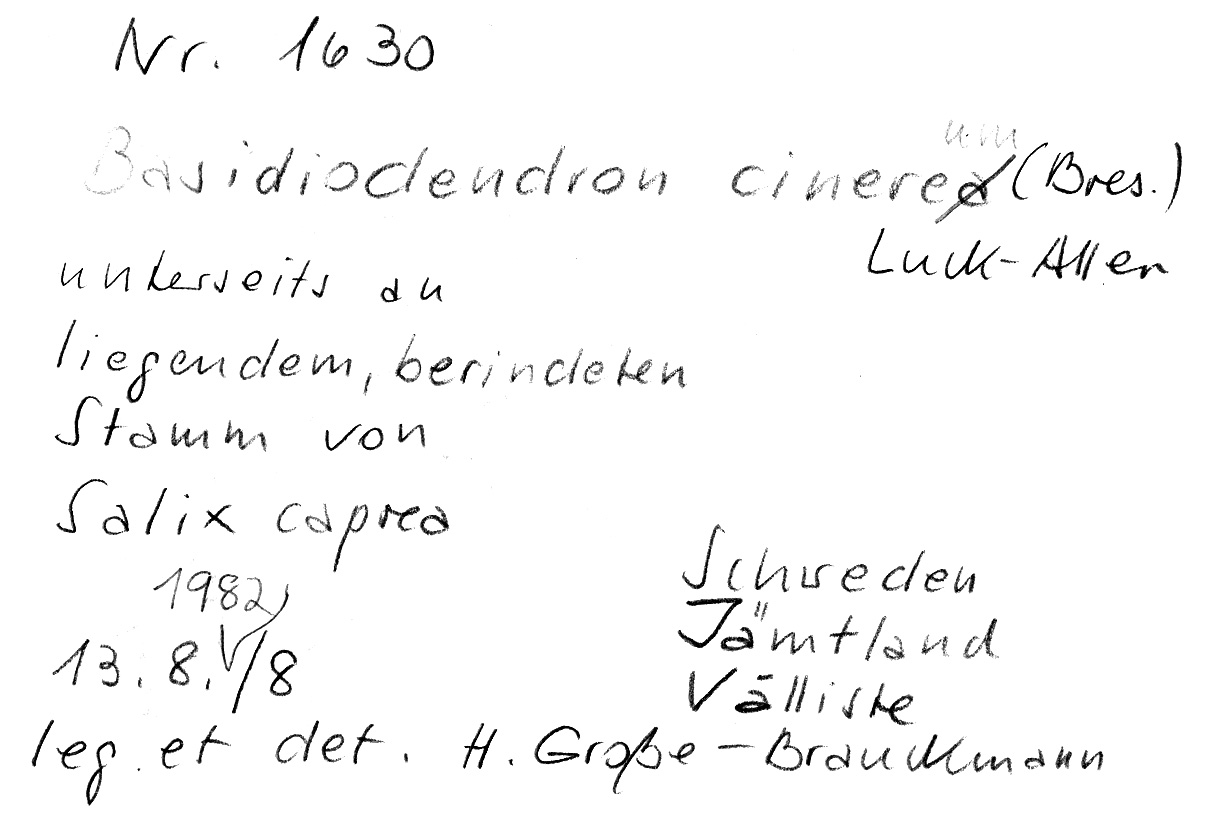 Nr. 1630
Basidiodendron cinereum (Bres.)
Luck-Allen
unterseits an
liegendem, berindeten
Stamm von
Salix caprea
1982,
13. 8. /8
Schweden
Jämtland
Välliste
leg. et det. H. Große-Brauckmann